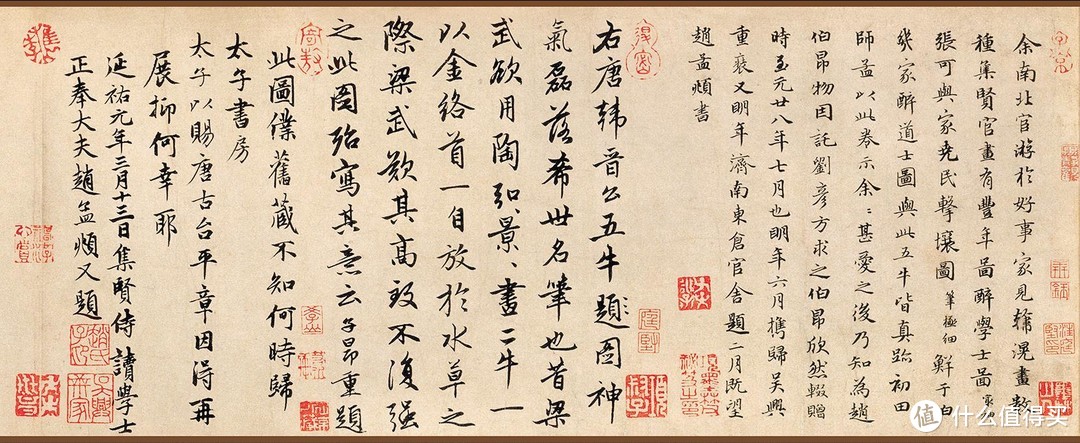 余南北宦游於好事家見韓滉畫數
種集賢官畫有豐年圖醉學士圖最神
張可與家堯民擊壤圖筆極細鮮于伯
幾家醉道士圖與此五牛皆真跡初田
師孟以此卷示余〻甚愛之後乃知為趙
伯昂物因託劉彥方求之伯昂欣然輟贈
時至元廿八年七月也明年六月携歸吳興
重裝又明年濟南東倉官舍題二月既望
趙孟頫書
右唐韓晉公五牛題圖神
氣磊落希世名筆也昔梁
武欲用陶弘景〻畫二牛一
以金絡首一自放於水草之
際梁武歎其高致不復强
之此圖殆寫其意云子昂重題
此圖僕舊藏不知何時歸
太子書房
太子以賜唐古台平章因得再
展抑何幸耶
延祐元年三月十三日集賢侍讀學士
正奉大夫趙孟頫又題
值 什么值得买